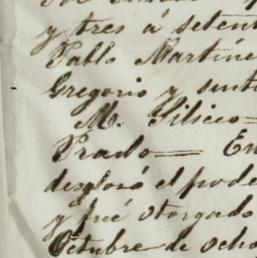 y tres á setent
Pablo Martine
Gregorio y
M. Siliceo=
Prado= En
desglosó el pode
y fué otorgado
Octubre de ocho